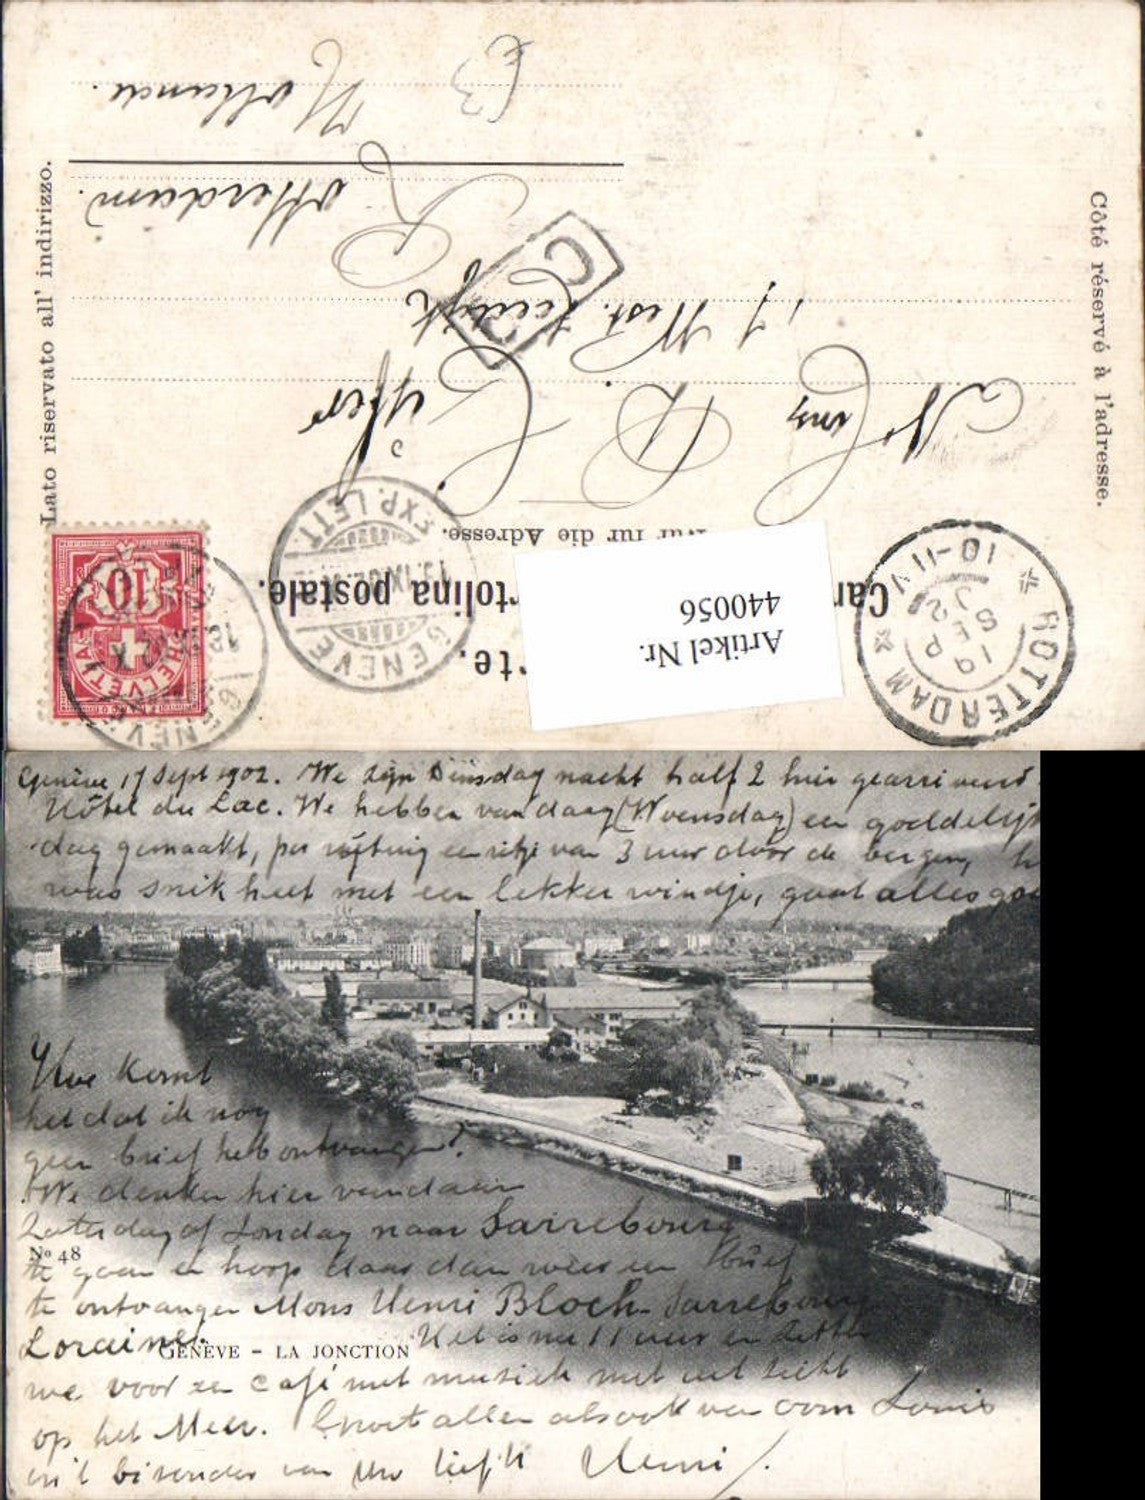 Carte postale.
Cartolina postale.
Nur für die Adresse.
Côté réservé à l'adresse.
Lato riservato all' indirizzo.
Artikel Nr.
440056
ROTTERDAM
19 SEP 02
10-11V
GENÈVE
EXP. LETT.
GENÈVE
HELVETIA
10
West. Zeedijk
Rotterdam.
Holland.
Genève 17 Sept 1902. We zijn Dinsdag nacht half 2 hier gearriveerd
Hôtel du Lac. We hebben vandaag (Woensdag) een goddelijk
dag gemaakt, per rijtuig een ritje van 3 uur door de bergen,
was snikheet met een lekker windje, gaat alles goe
Hoe komt
het dat ik nog
geen brief heb ontvangen?
We denken hier vandaan
Zaterdag of Zondag naar Sarrebourg
No 48
te gaan en hoop daar dan weer een brief
te ontvangen Mons Henri Bloch Sarrebourg
Loraine.
GENÈVE - LA JONCTION
Het is nu 11 uur en zitten
we voor een café met musiek met uitzicht
op het Meer. Groet allen alsook van oom Louis
en 't bizonder van Uw liefh Henri